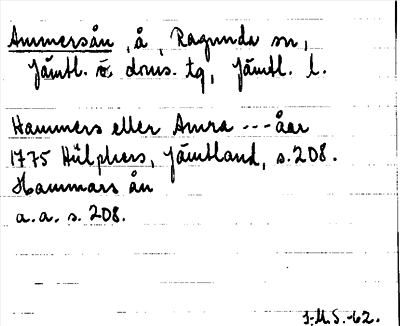 Ammersån, å, Ragunda sn,
Jämtl. ö doms. tg, Jämtl. l.
Hammers eller Amra --- åar
1775 Hülphers, Jämtland, s. 208.
Hammars ån
a.a. s. 208.
I.M.S. -62.